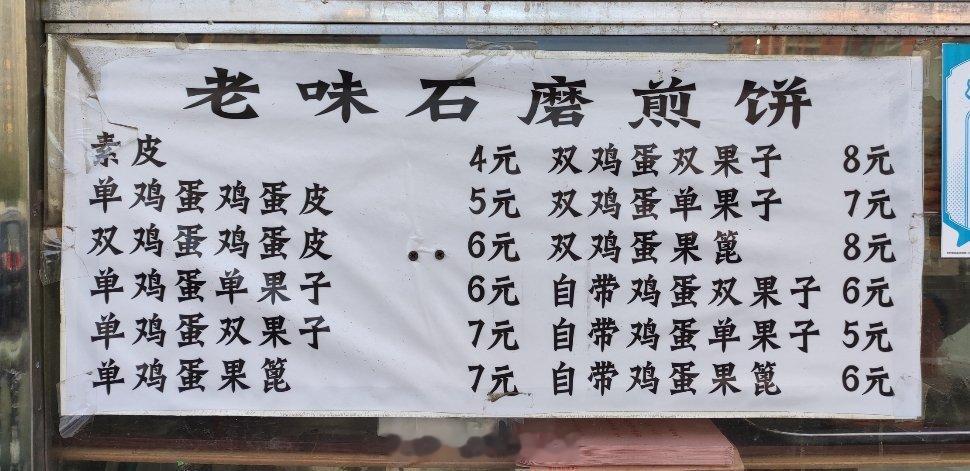 老味石磨煎饼
素皮 4元
单鸡蛋鸡蛋皮 5元
双鸡蛋鸡蛋皮 6元
单鸡蛋单果子 6元
单鸡蛋双果子 7元
单鸡蛋果篦 7元
双鸡蛋双果子 8元
双鸡蛋单果子 7元
双鸡蛋果篦 8元
自带鸡蛋双果子 6元
自带鸡蛋单果子 5元
自带鸡蛋果篦 6元